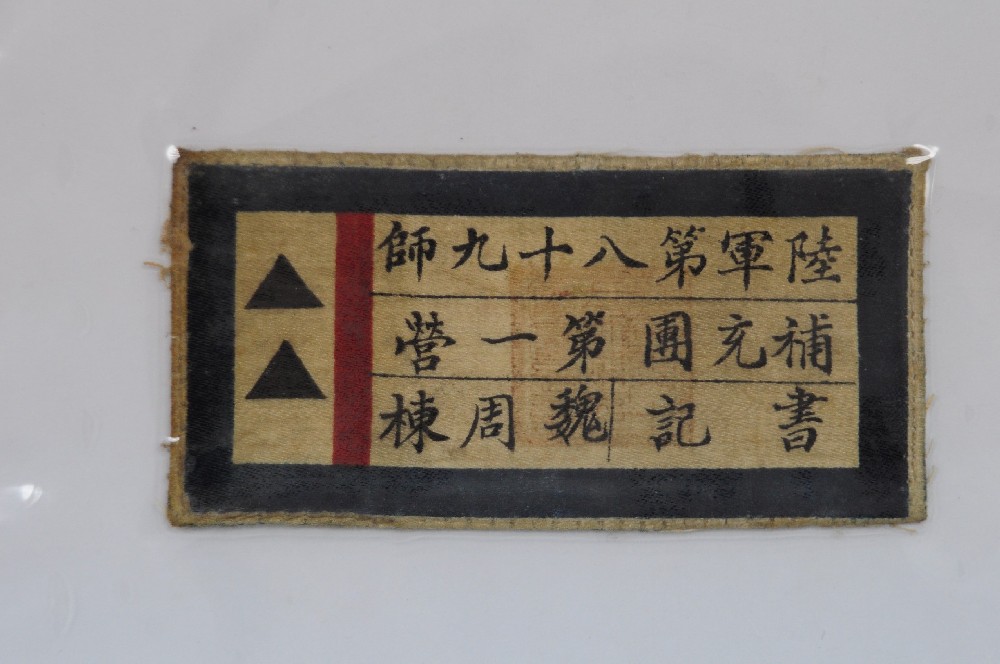 陸軍第八十九師
補充團第一營
書記 魏周棟